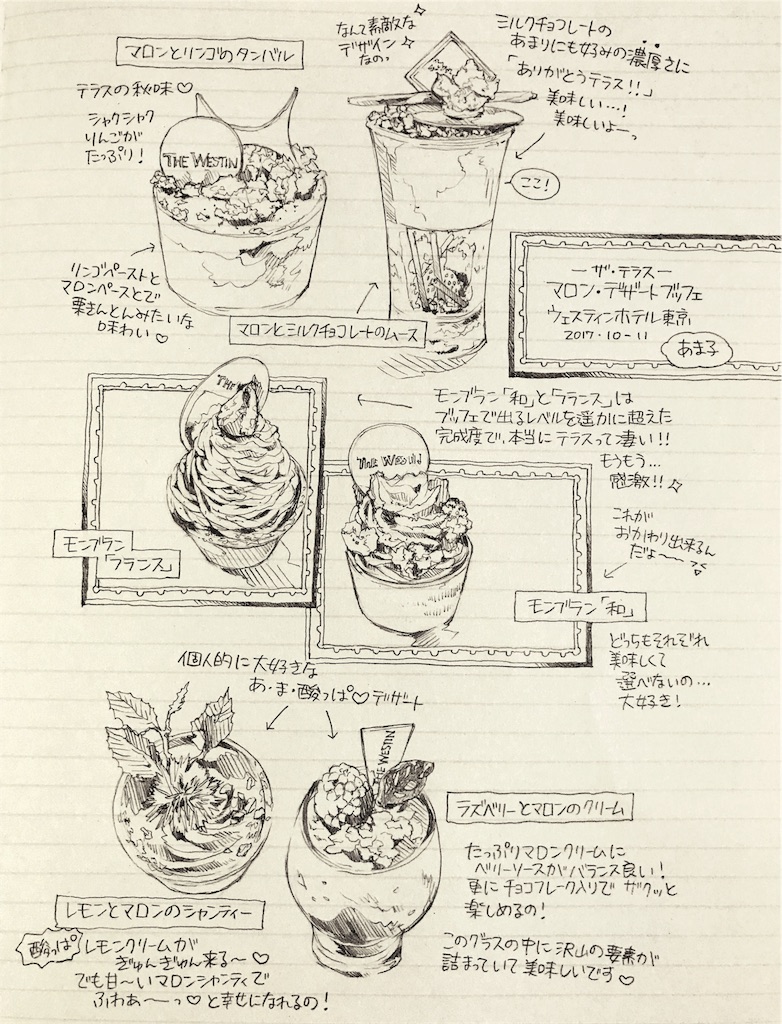 マロンとリンゴのタンバル
テラスの秋味♡
シャクシャク
りんごが
たっぷり!
THE WESTIN
リンゴペーストと
マロンペーストで
栗きんとんみたいな
味わい♡
なんて素敵な
デザイン
なのっ
ミルクチョコレートの
あまりにも好みの濃厚さに
「ありがとうテラス!!」
美味しい…!
美味しいよーっ
ここ!
マロンとミルクチョコレートのムース
ーザ・テラスー
マロン・デザートブッフェ
ウェスティンホテル東京
2017・10-11
あま子
モンブラン「和」と「フランス」は
ブッフェで出るレベルを遥かに超えた
完成度で、本当にテラスって凄い!!
もうもう…
感激!!
THE W
モンブラン
「フランス」
THE WESTIN
これが
おかわり出来るん
だよ〜〜
モンブラン「和」
どっちもそれぞれ
美味しくて
選べないの…
大好き!
個人的に大好きな
あ・ま・酸っぱ♡デザート
THE WESTIN
レモンとマロンのシャンティー
酸っぱ
レモンクリームが
ぎゅんぎゅん来る〜♡
でも甘〜いマロンシャンティで
ふわあ〜っ♡と幸せになれるの!
ラズベリーとマロンのクリーム
たっぷりマロンクリームに
ベリーソースがバランス良い!
更にチョコフレーク入りでザクッと
楽しめるの!
このグラスの中に沢山の要素が
詰まっていて美味しいです♡